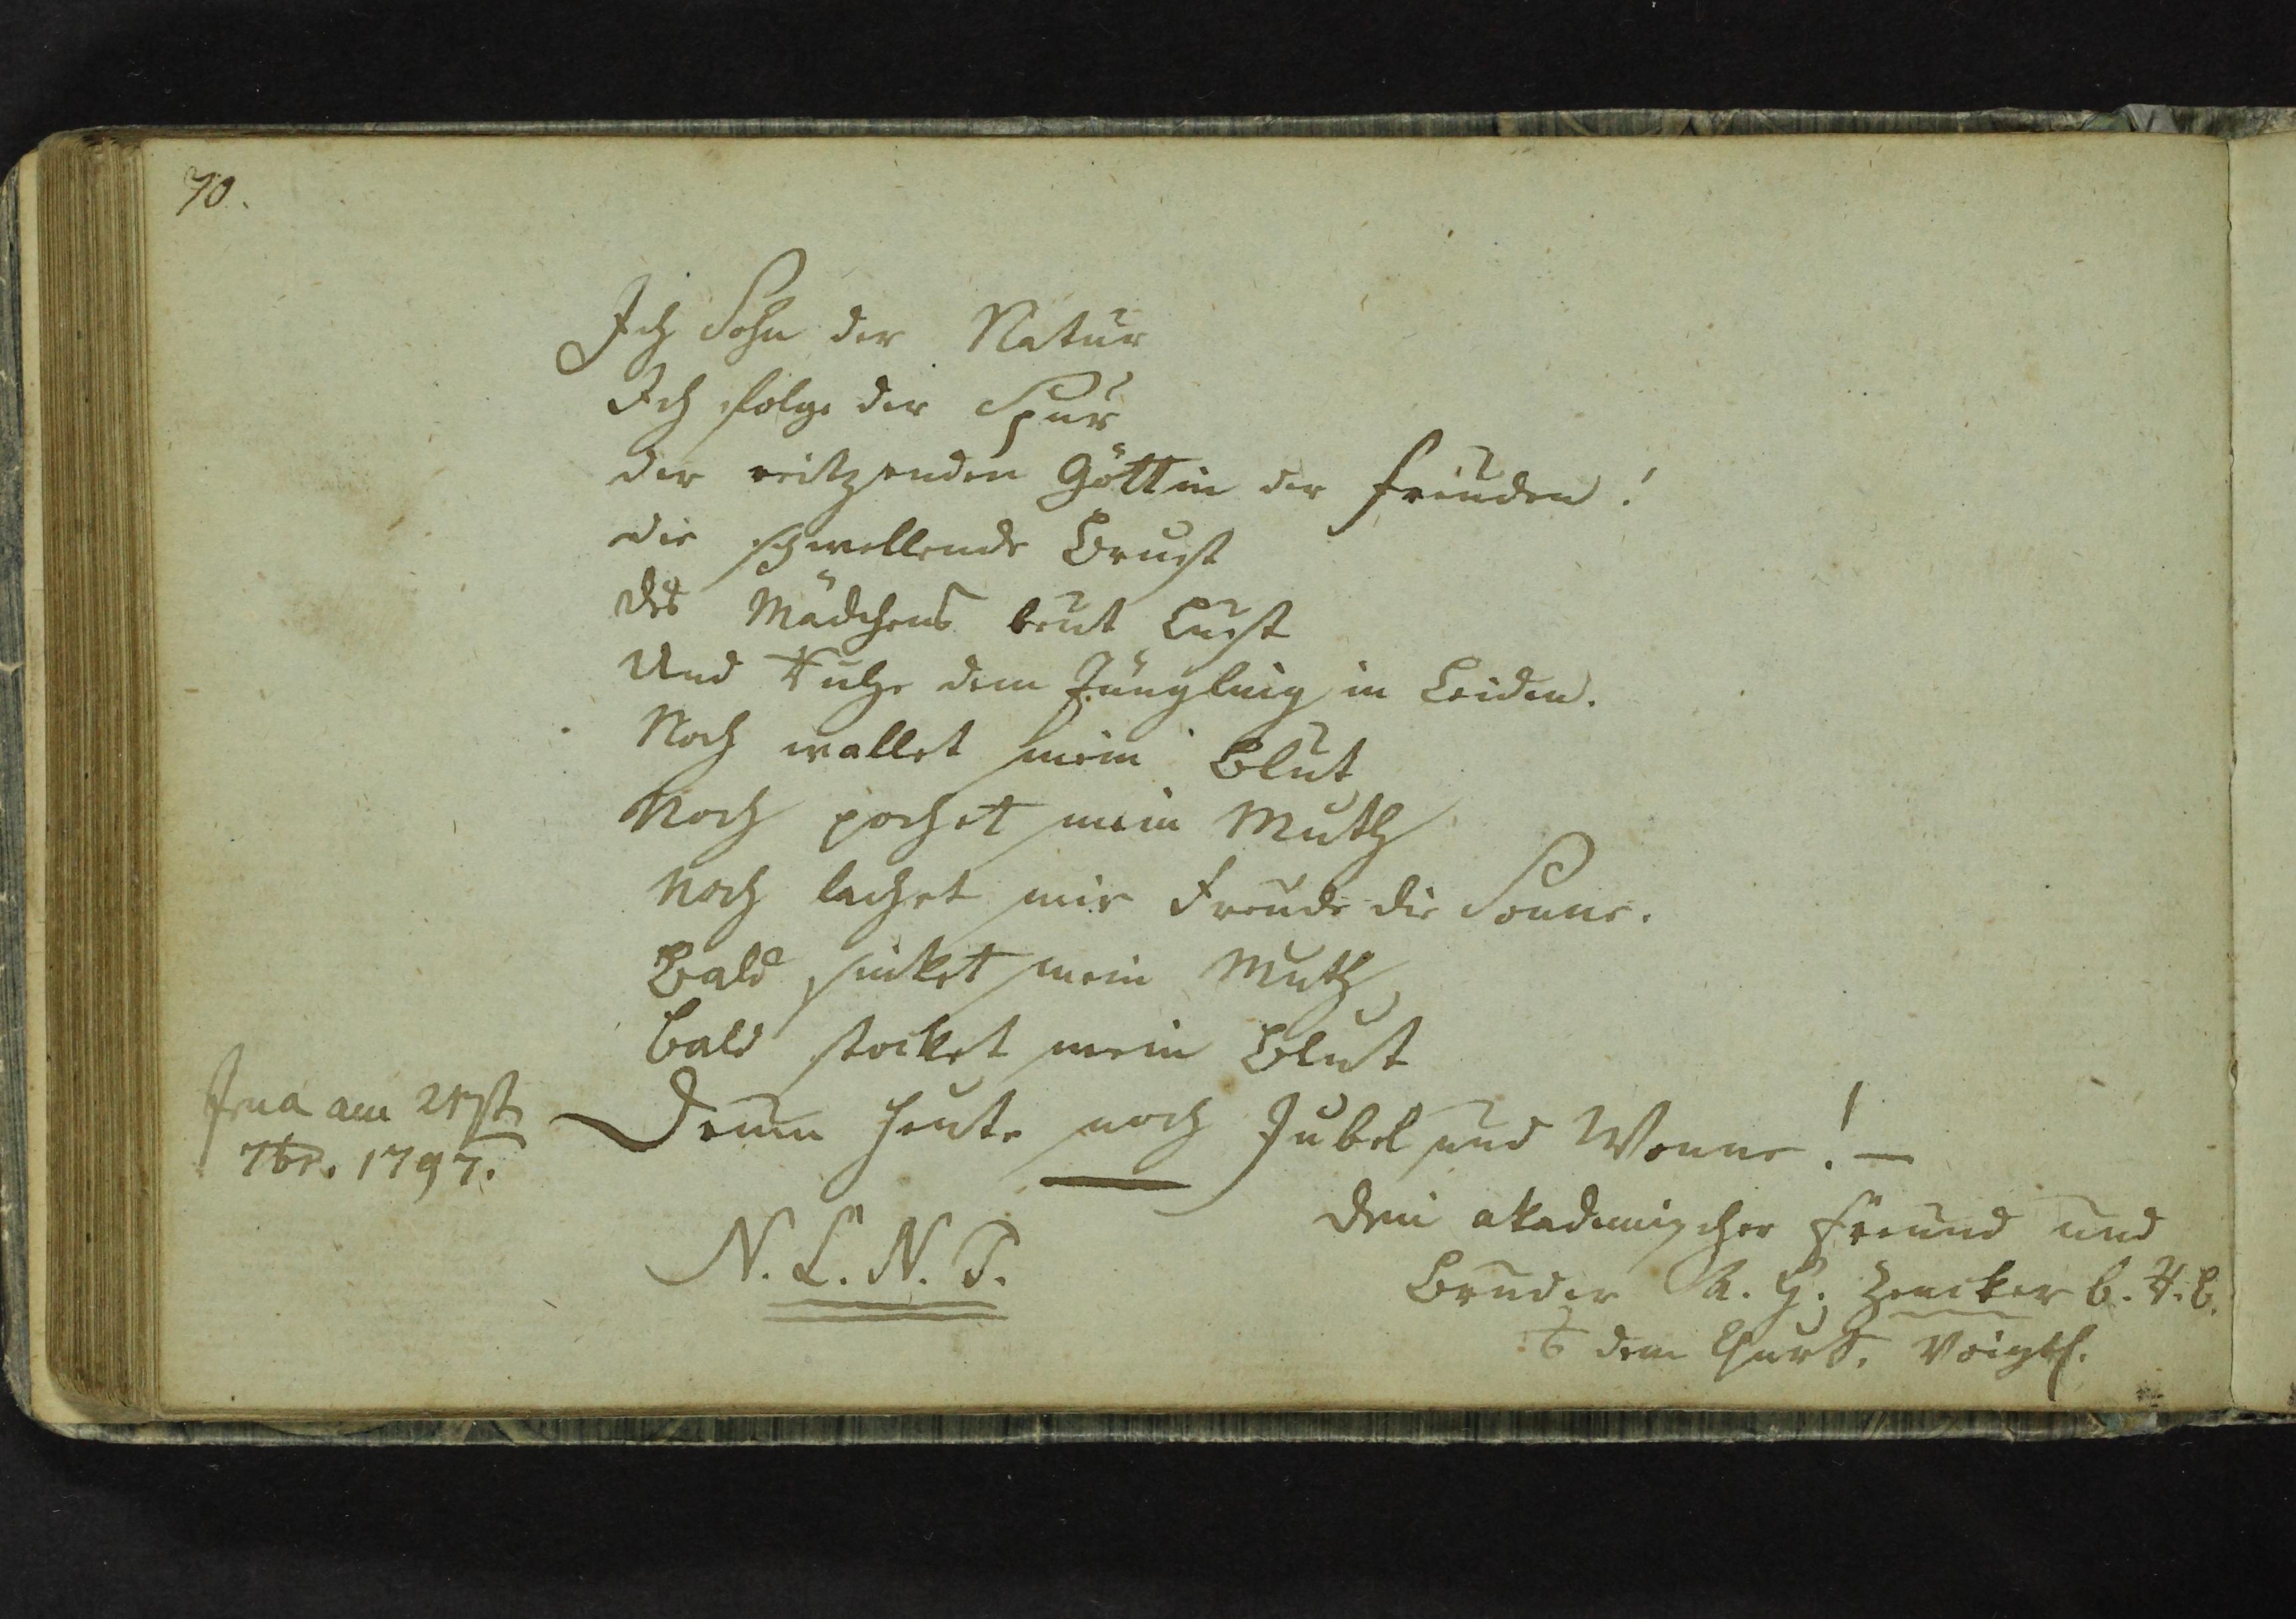 70.
Ich Sohn der Natur
Ich folge der Spur
der reitzenden Göttin der Freuden!
die schwellende Brust
des Mädchens beut Lust
Und Ruhe dem Jüngling in Leiden.
Noch wallet mein Blut
Noch pochet mein Muth
Noch lachet mir Freude die Sonne.
Bald sinket mein Muth,
bald stocket mein Blut
Drum heute noch Jubel und Wonne! —
Jena am 21st
7br. 1797.
N. L. N. T.
Dein akademischer Freund und
Bruder A. G. Zencker b. R. b.
dem Churs. Voigtl.